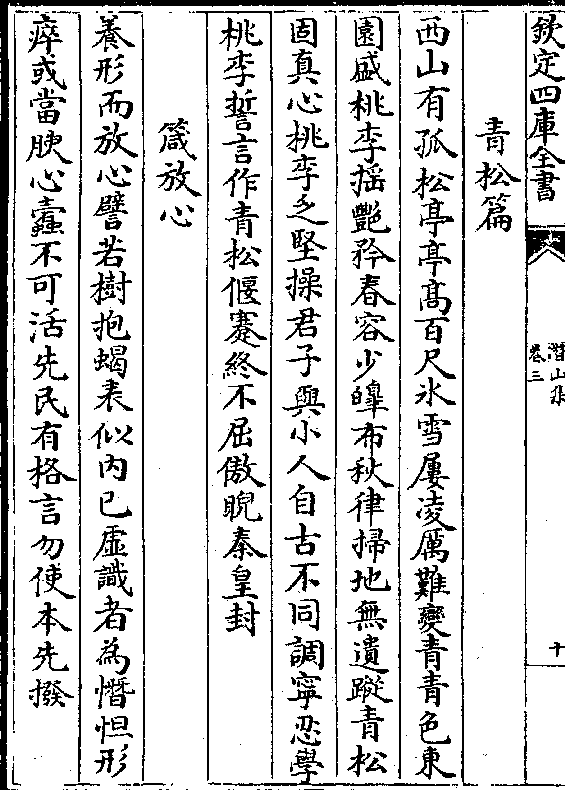 欽定四庫全書
潛山集
卷三
十
青松篇
西山有孤松亭亭髙百尺氷雪屢凌厲難變青青色東
園盛桃李揺艷矜春容少皥布秋律掃地無遺蹤青松
固真心桃李乏堅操君子與小人自古不同調寧忍學
桃李誓言作青松偃蹇終不屈傲睨秦皇封
箴放心
養形而放心譬若樹抱蝎表似内已虛識者為憯怛形
瘁或當腴心蠧不可活先民有格言勿使本先撥